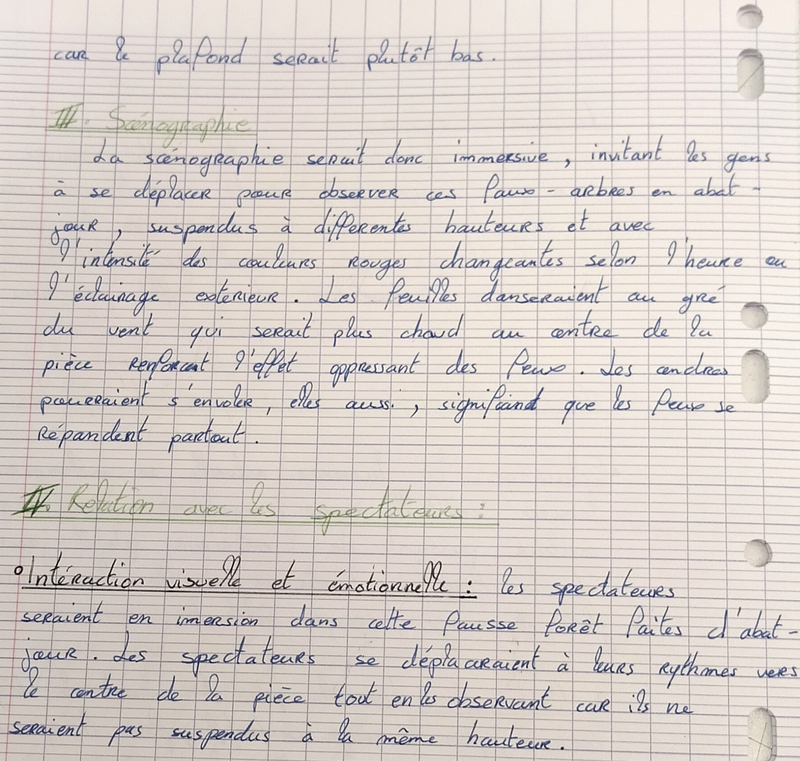 car le plafond serait plutôt bas.
III. Scénographie
La scénographie serait donc immersive, invitant les gens
à se déplacer pour observer ces faux-arbres en abat-
jour, suspendus à différentes hauteurs et avec
l'intensité des couleurs rouges changeantes selon l'heure ou
l'éclairage exterieur. Les feuilles danseraient au gré
du vent qui serait plus chaud au centre de la
pièce renforcant l'effet oppressant des feux. Les cendres
pourraient s'envoler, elles aussi, signifiand que les feux se
répandent partout.
IV. Relation avec les spectateurs :
Intéraction visuelle et émotionnelle : les spectateurs
seraient en imersion dans cette fausse forêt faites d'abat-
jour. Les spectateurs se déplaçaraient à leurs rythmes vers
le centre de la pièce tout en les observant car ils ne
seraient pas suspendus à la même hauteur.